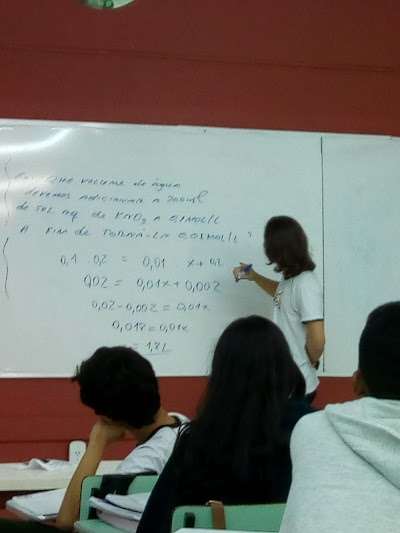 volume de água
devemos adicionar a 200ml
de sol aq de KNO3 a 0,1mol/L
a fim de torná-la 0,01mol/L?
0,1 . 02 = 0,01 x + 0,2
0,02 = 0,01x + 0,002
0,02 - 0,002 = 0,01x
0,018 = 0,01x
= 1,8L